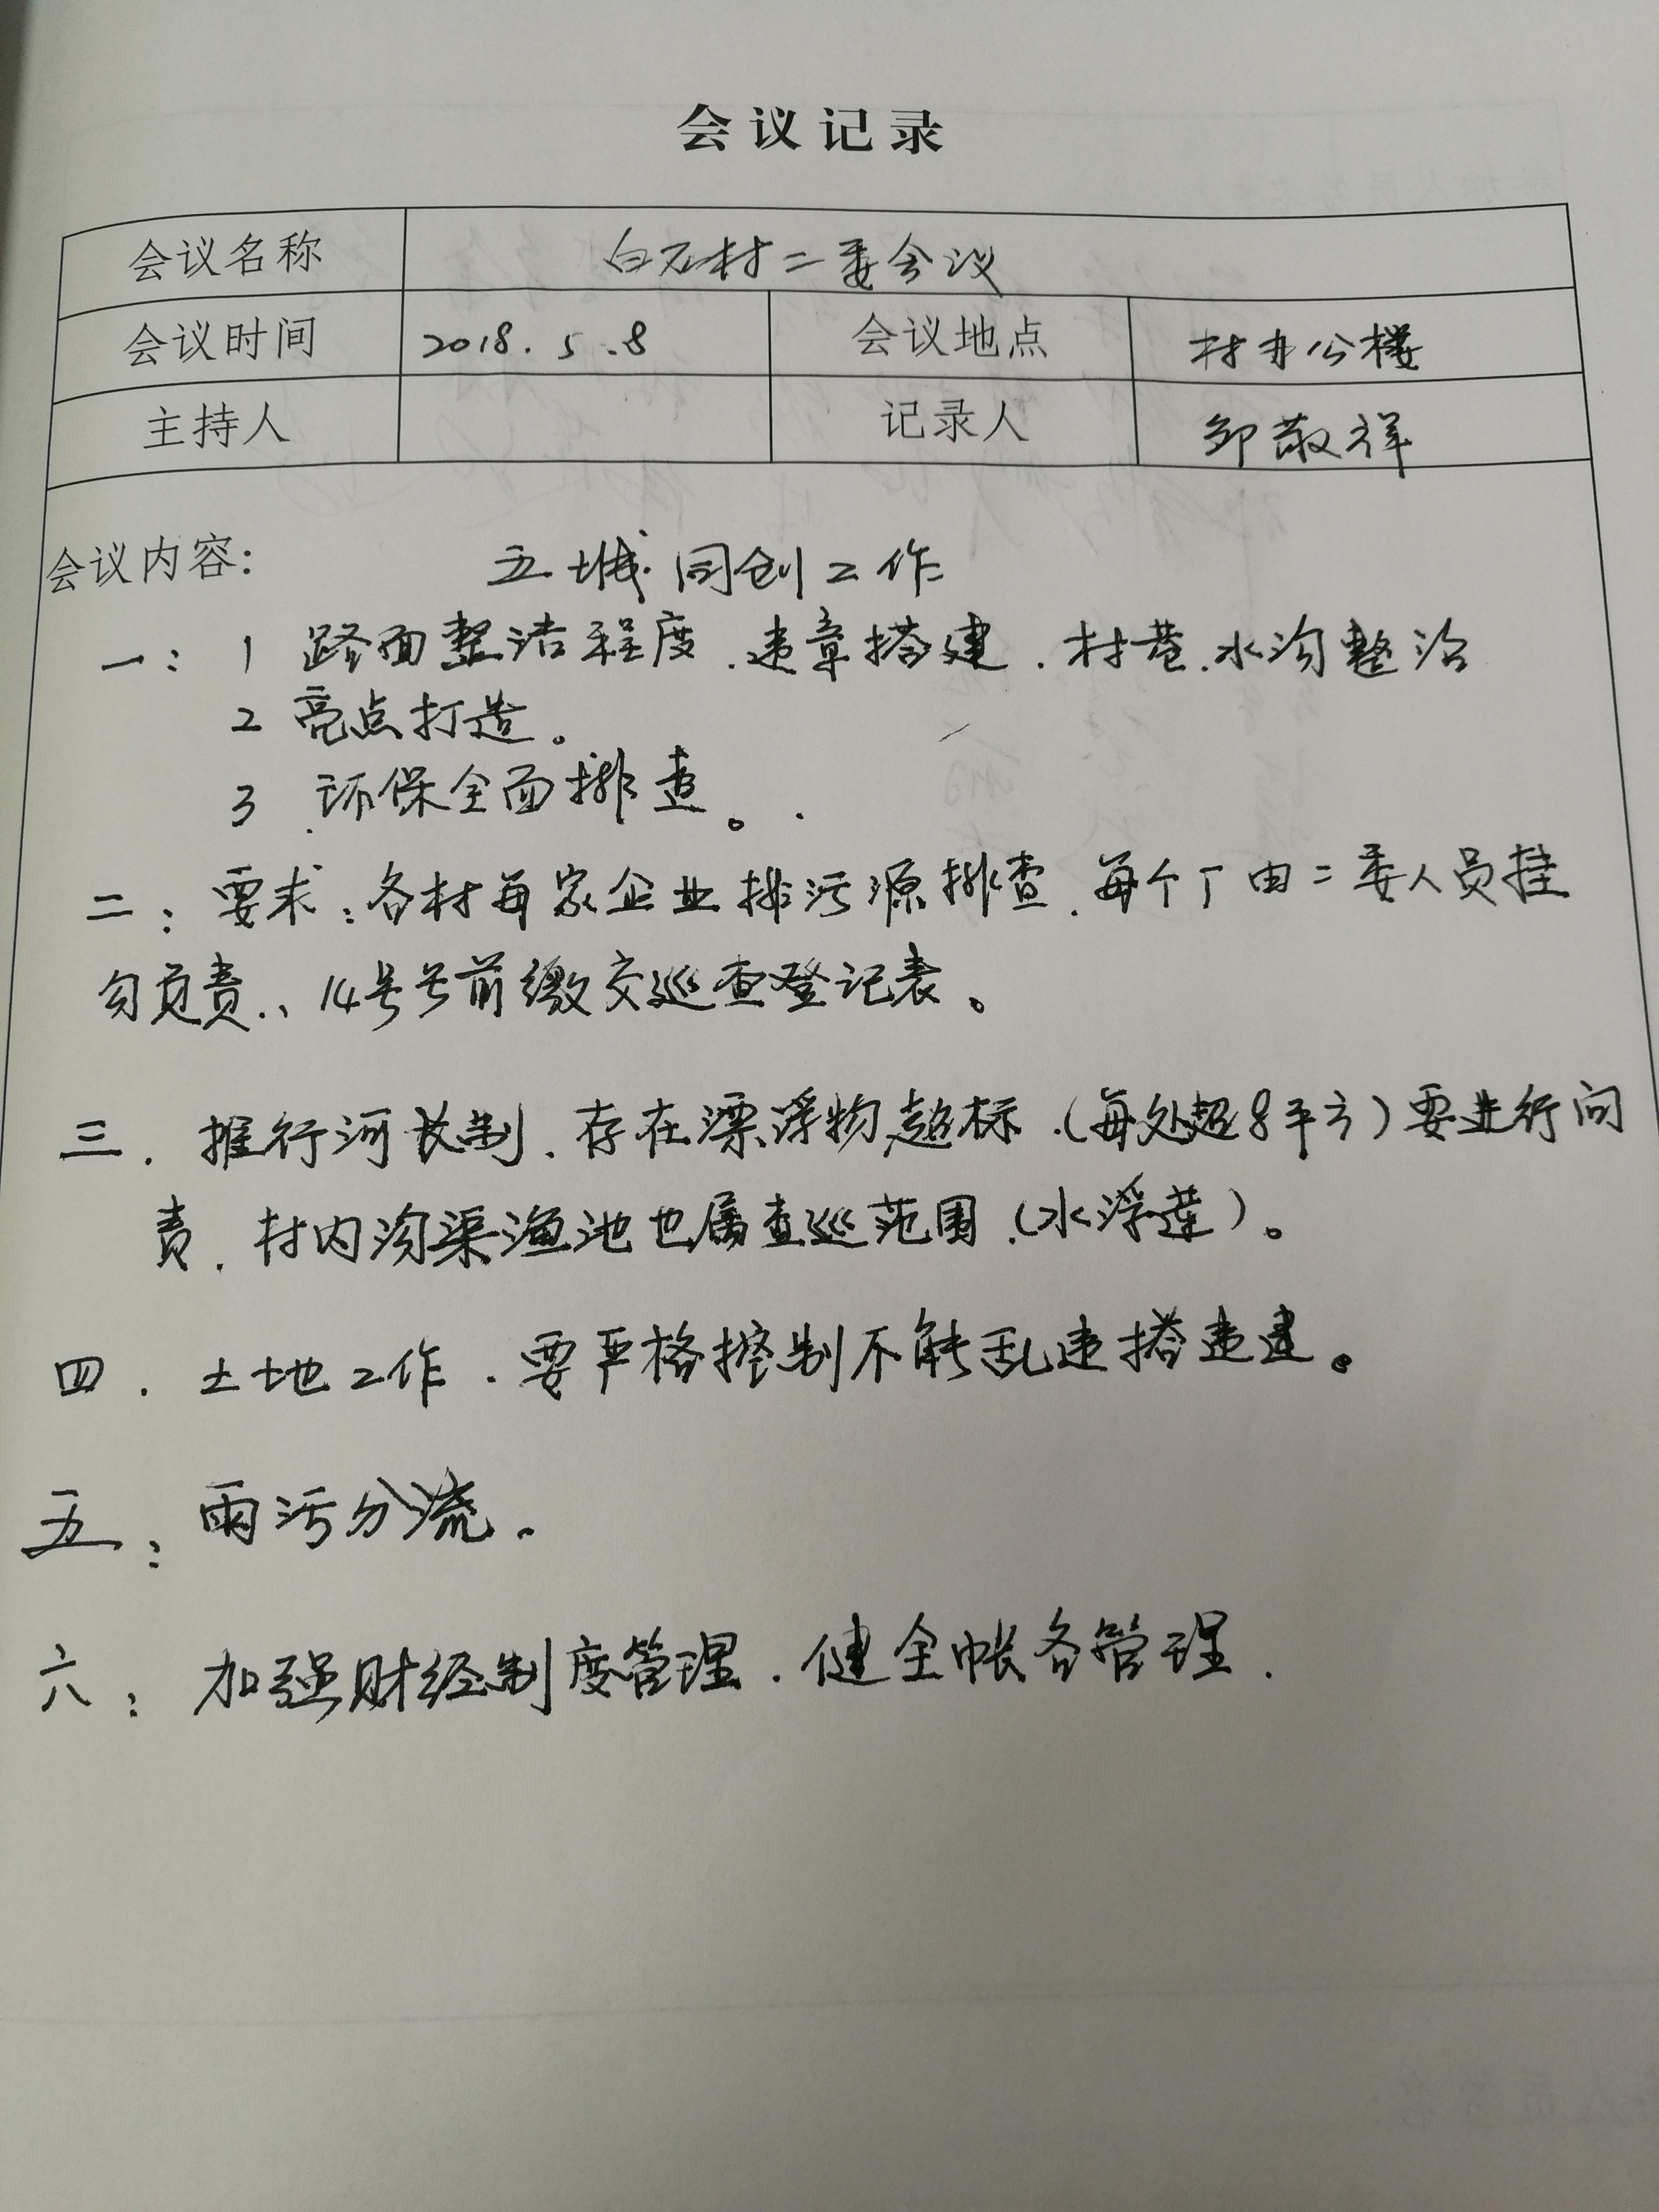 会议记录
会议名称 白石村二委会议
会议时间 2018.5.8 会议地点 村办公楼
主持人 记录人 邹敬祥
会议内容: 五城同创工作
一: 1 路面整洁程度、违章搭建、村巷、水沟整治
2 亮点打造。
3、环保全面排查。
二: 要求:各村每家企业排污源排查、每个厂由二委人员挂
勾负责、14号号前缴交巡查登记表。
三、推行河长制、存在漂浮物超标、(每处超8平方)要进行问
责、村内沟渠渔池也属查巡范围、(水浮莲)。
四、土地工作、要严格控制不能乱违搭违建。
五: 雨污分流.
六: 加强财经制度管理、健全帐务管理.